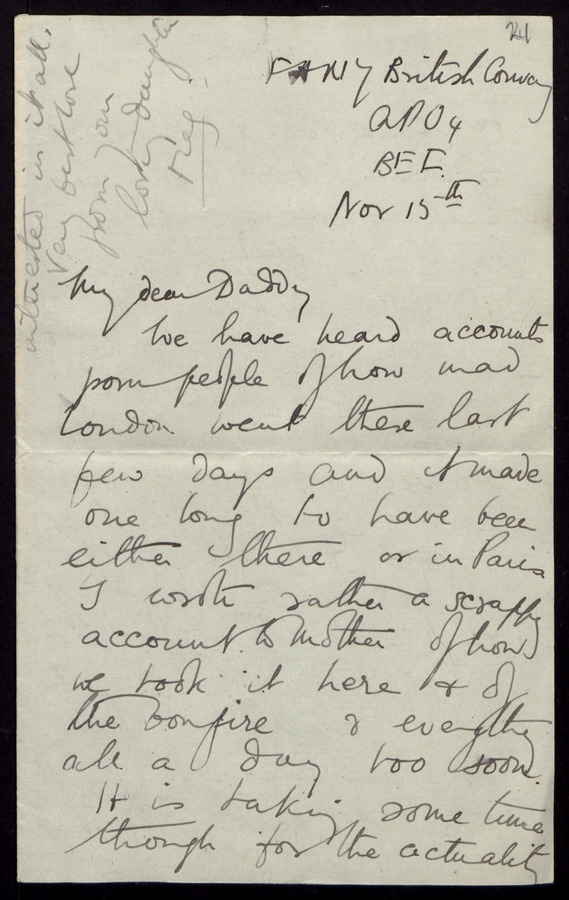 24
FANY British Convoy
APO 4
BEF.
Nov 15th
My dear Daddy
We have heard accounts
from people of how mad
London went these last
few days and it made
one long to have been
either there or in Paris
I wrote rather a scrappy
account to Mother of how
we took it here & of
the bonfire & everything
all a day too soon.
It is taking some time
though for the actuality
interested in it all.
Very best love
from your
loving daughter